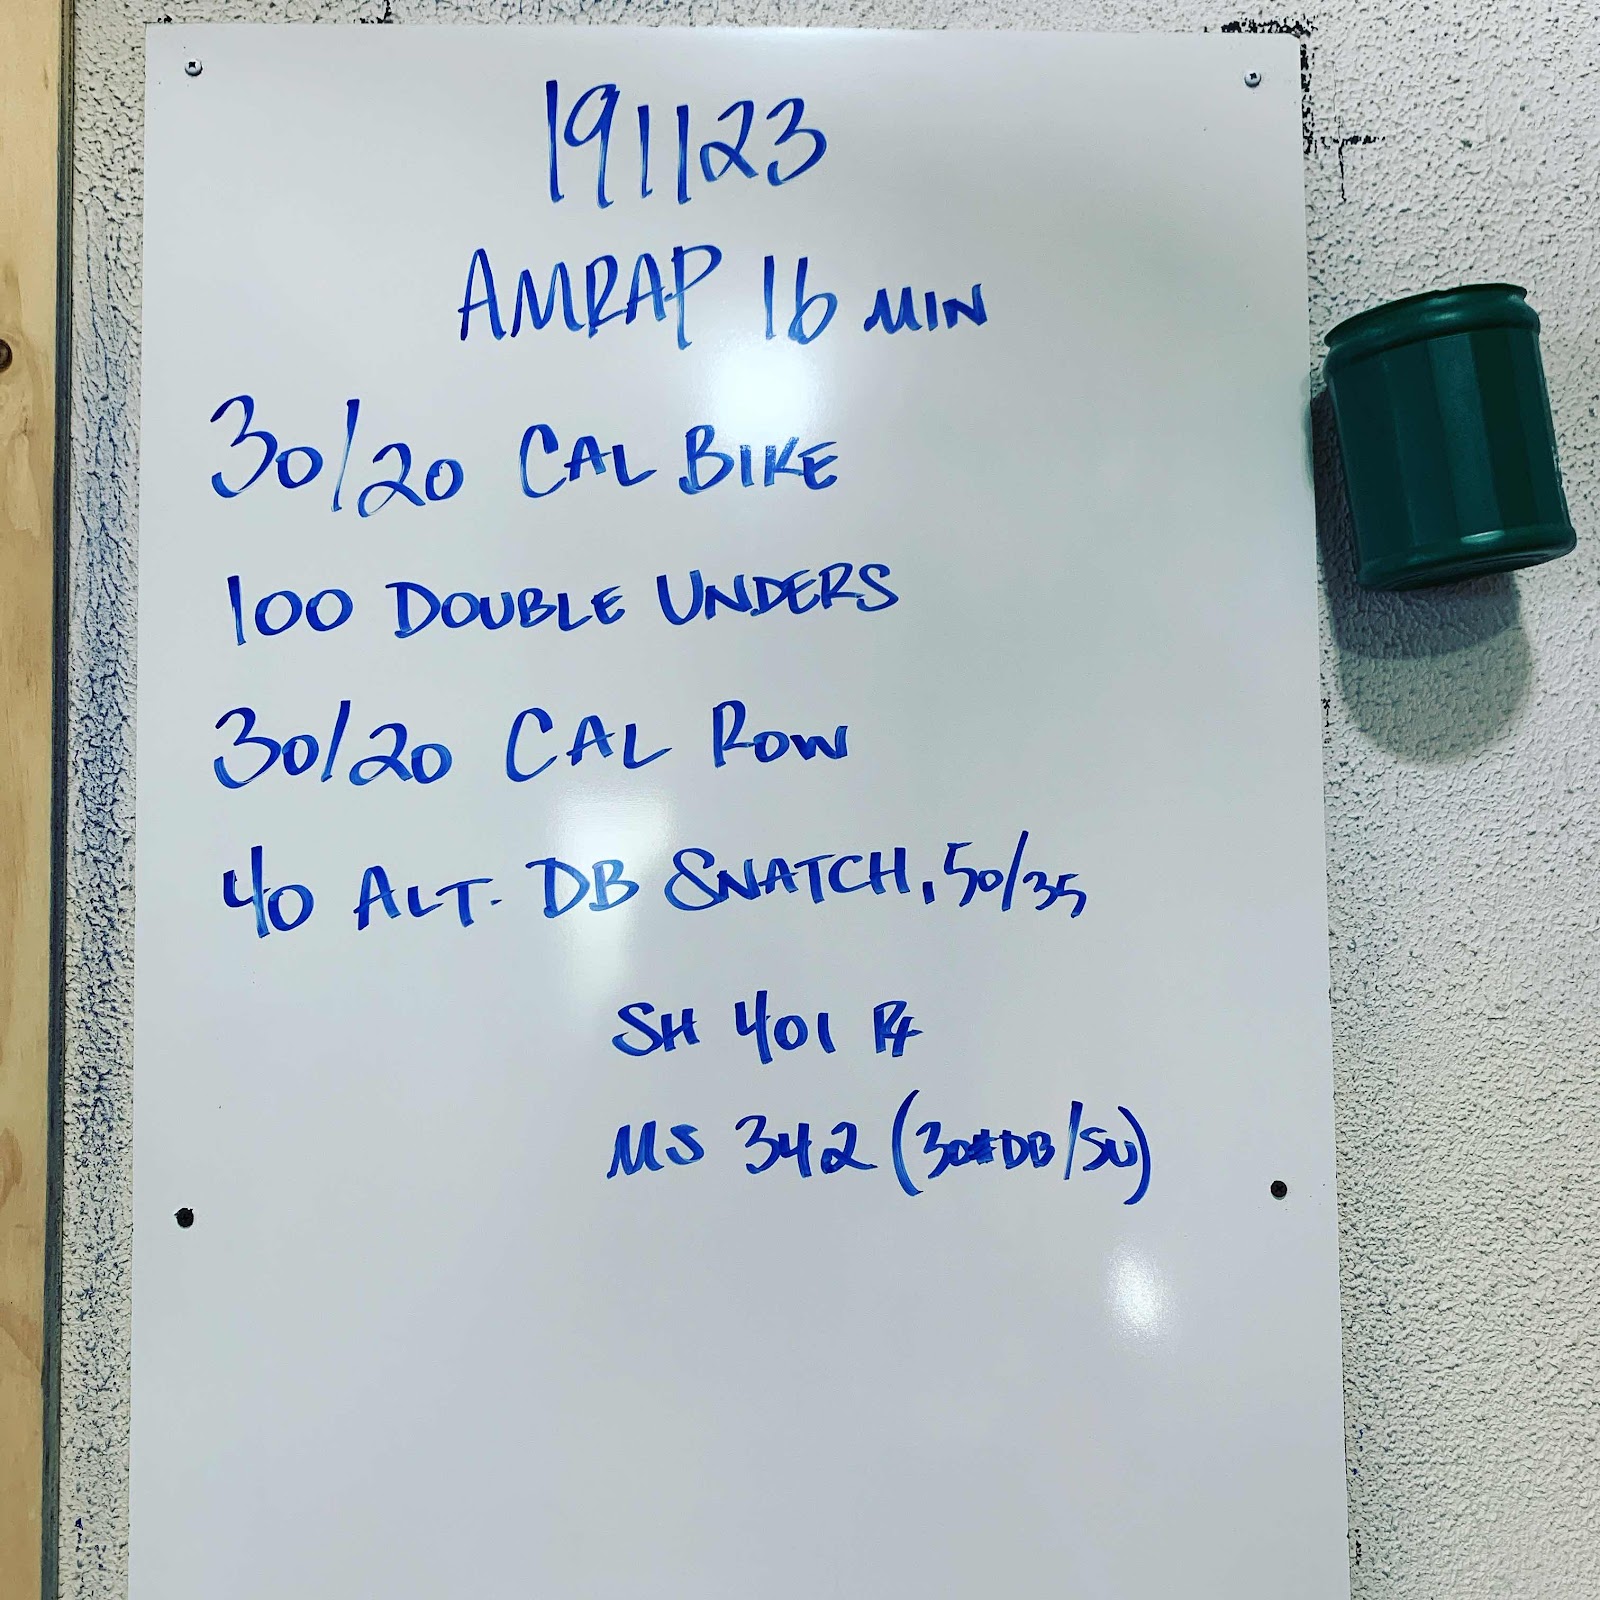 191123
AMRAP 16 MIN
30/20 CAL BIKE
100 DOUBLE UNDERS
30/20 CAL ROW
40 ALT. DB SNATCH, 50/35
SH 401 RX
MS 342 (30#DB/SU)